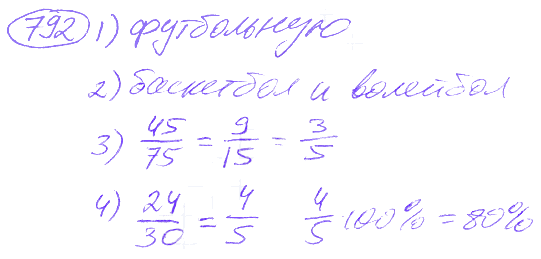 792 1) футбольную
2) баскетбол и волейбол
3) 45/75 = 9/15 = 3/5
4) 24/30 = 4/5 4/5 · 100% = 80%